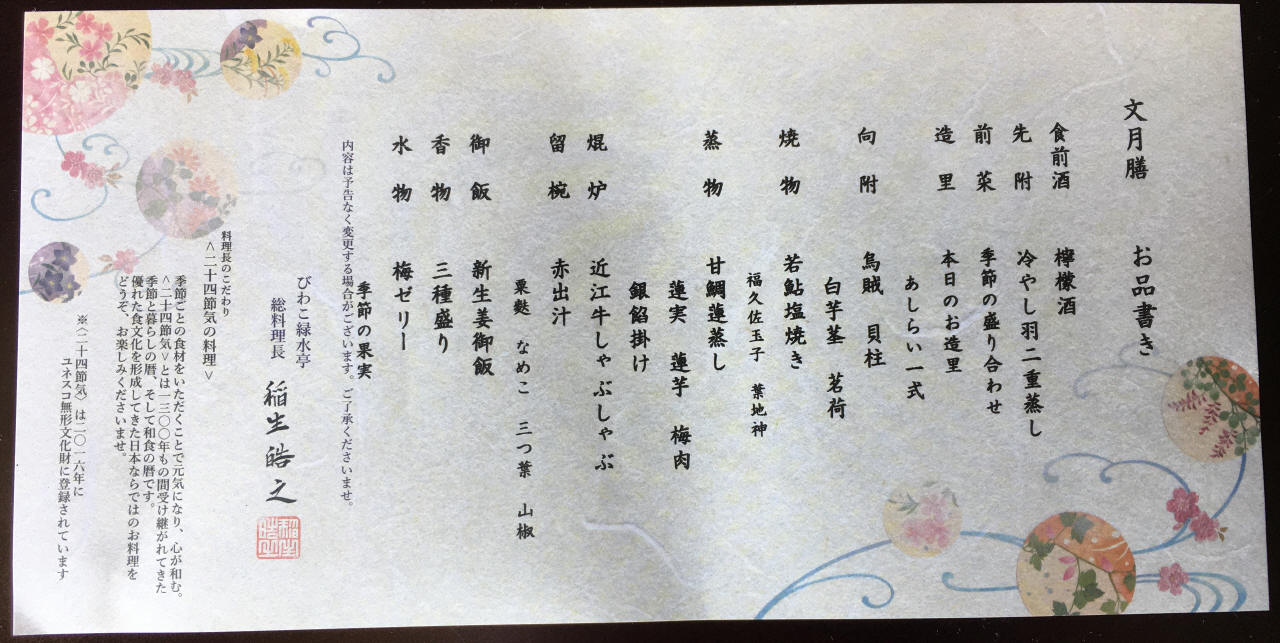 文月膳 お品書き
食前酒 檸檬酒
先附 冷やし羽二重蒸し
前菜 季節の盛り合わせ
造里 本日のお造里
あしらい一式
向附 烏賊 貝柱
白芋茎 茗荷
焼物 若鮎塩焼き
福久佐玉子 葉地神
蒸物 甘鯛蓮蒸し
蓮実 蓮芋 梅肉
銀餡掛け
焜炉 近江牛しゃぶしゃぶ
留椀 赤出汁
粟麩 なめこ 三つ葉 山椒
御飯 新生姜御飯
香物 三種盛り
水物 梅ゼリー
季節の果実
内容は予告なく変更する場合がございます。ご了承くださいませ。
びわこ緑水亭
総料理長 稲生皓之
料理長のこだわり
<二十四節気の料理>
季節ごとの食材をいただくことで元気になり、心が和む。
<二十四節気>とは一三〇〇年もの間受け継がれてきた
季節と暮らしの暦、そして和食の暦です。
優れた食文化を形成してきた日本ならではのお料理を
どうぞ、お楽しみくださいませ。
※〈二十四節気〉は二〇一六年に
ユネスコ無形文化財に登録されています